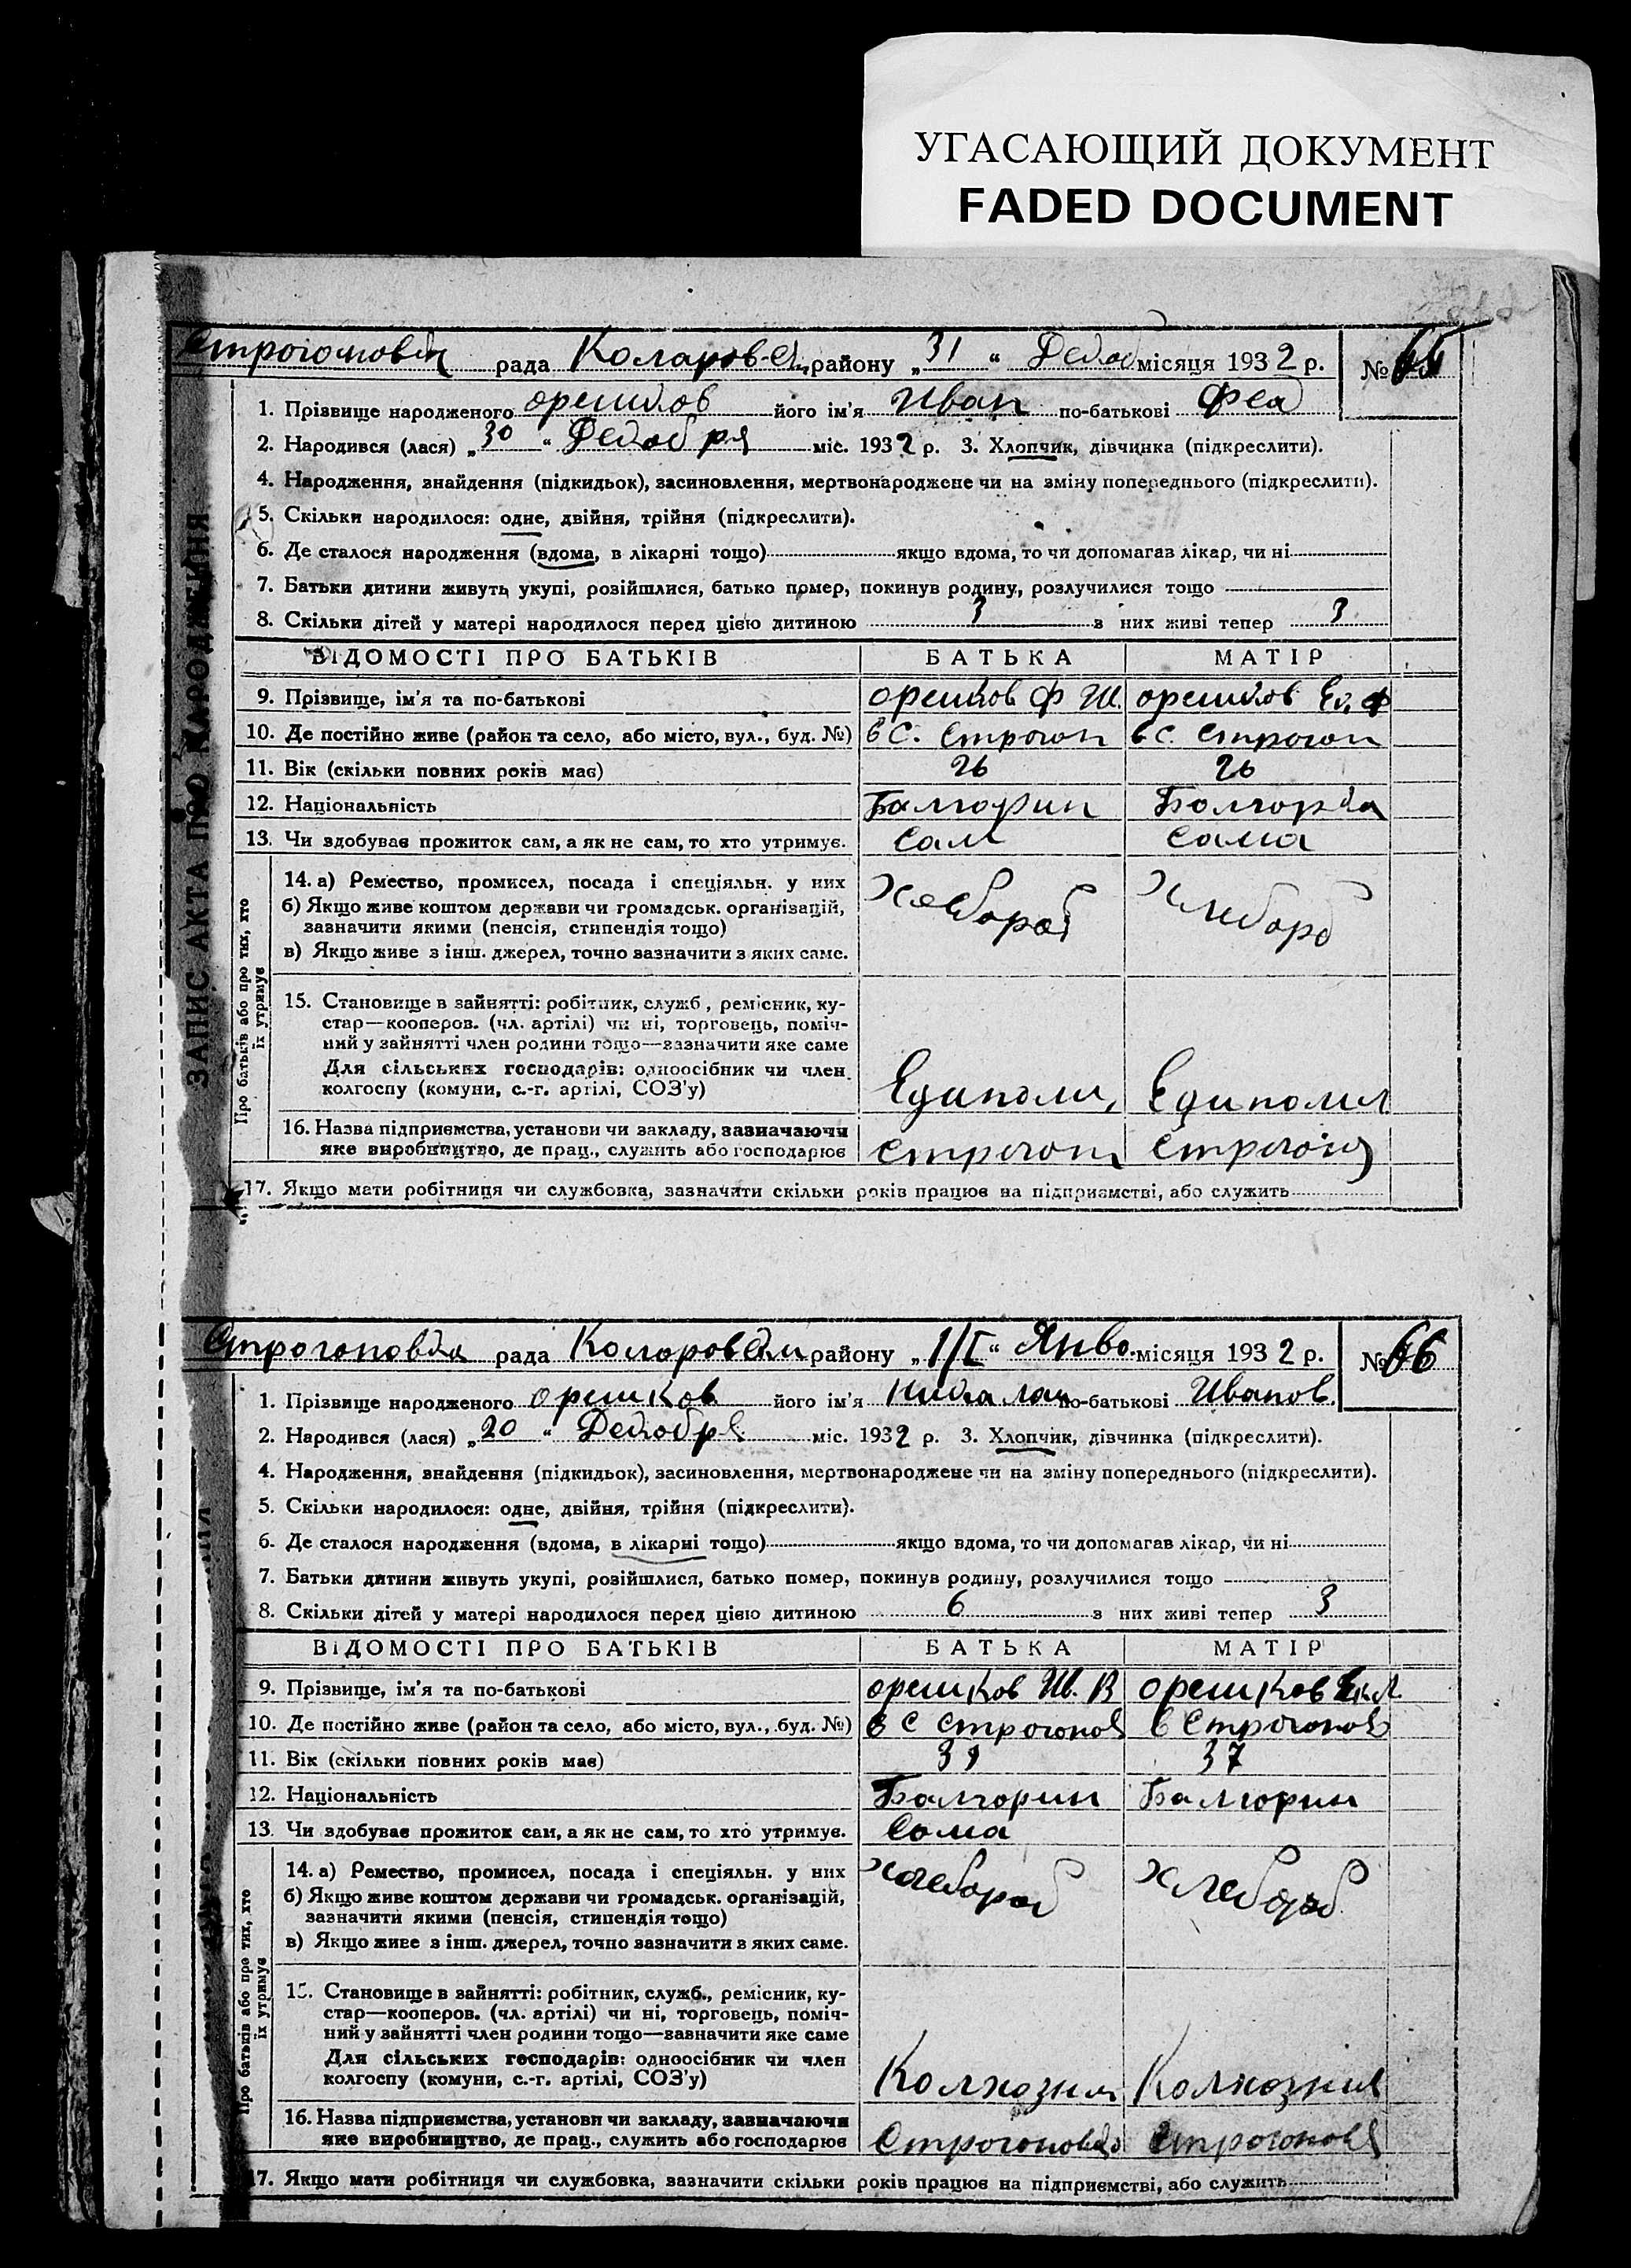 УГАСАЮЩИЙ ДОКУМЕНТ
FADED DOCUMENT
рада района „31“ Декаб місяця 1932 р. № 65
ЗАПИС АКТА ПРО НАРОДЖЕННЯ
1. Прізвище народженого Орешков його ім’я Иван по-батькові Фед
2. Народився (лася) „30“ Декабря міс. 1932 р. 3. Хлопчик, дівчинка (підкреслити).
4. Народження, знайдення (підкидьок), засиновлення, мертвонароджене чи на зміну попереднього (підкреслити).
5. Скільки народилося: одне, двійня, трійня (підкреслити).
6. Де сталося народження (вдома, в лікарні тощо) якщо вдома, то чи допомагав лікар, чи ні
7. Батьки дитини живуть укупі, розійшлися, батько помер, покинув родину, розлучилися тощо
8. Скільки дітей у матері народилося перед цією дитиною 3 з них живі тепер 3
ВІДОМОСТІ ПРО БАТЬКІВ БАТЬКА МАТІР
9. Прізвище, ім’я та по-батькові Орешков Ф Ив. Орешков Ек. Ф
10. Де постійно живе (район та село, або місто, вул., буд. №) в С. Строгон в С. Строгон
11. Вік (скільки повних років має) 26 26
12. Національність Балгорин Болгорка
13. Чи здобуває прожиток сам, а як не сам, то хто утримує. Сам Сама
Про батьків або про тих, хто їх утримує
14. а) Ремество, промисел, посада і спеціяльн. у них Хлебороб Хлебороб
б) Якщо живе коштом держави чи громадськ. організацій,
зазначити якими (пенсія, стипендія тощо)
в) Якщо живе з інш. джерел, точно зазначити з яких саме.
15. Становище в зайнятті: робітник, служб., ремісник, ку-
стар—кооперов. (чл. артілі) чи ні, торговець, поміч-
ний у зайнятті член родини тощо—зазначити яке саме
Для сільських господарів: одноосібник чи член
колгоспу (комуни, с.-г. артілі, СОЗ’у) Едиполи, Едиполи
16. Назва підприємства, установи чи закладу, зазначаючи
яке виробництво, де прац., служить або господарює Строгон Строгон
17. Якщо мати робітниця чи службовка, зазначити скільки років працює на підприємстві, або служить
Строгоновка рада району „1/I“ Янво. місяця 1932 р. № 66
1. Прізвище народженого Орешков його ім’я Николай по-батькові Иванов
2. Народився (лася) „20“ Декобря міс. 1932 р. 3. Хлопчик, дівчинка (підкреслити).
4. Народження, знайдення (підкидьок), засиновлення, мертвонароджене чи на зміну попереднього (підкреслити).
5. Скільки народилося: одне, двійня, трійня (підкреслити).
6. Де сталося народження (вдома, в лікарні тощо) якщо вдома, то чи допомагав лікар, чи ні
7. Батьки дитини живуть укупі, розійшлися, батько помер, покинув родину, розлучилися тощо
8. Скільки дітей у матері народилося перед цією дитиною 6 з них живі тепер 3
ВІДОМОСТІ ПРО БАТЬКІВ БАТЬКА МАТІР
9. Прізвище, ім’я та по-батькові Орешков Ив. В Орешков Ек. Л
10. Де постійно живе (район та село, або місто, вул., буд. №) в С Строгонов в Строгонов
11. Вік (скільки повних років має) 39 37
12. Національність Болгорин Балгорин
13. Чи здобуває прожиток сам, а як не сам, то хто утримує. Сома
Про батьків або про тих, хто їх утримує
14. а) Ремество, промисел, посада і спеціяльн. у них Хлебороб Хлебороб
б) Якщо живе коштом держави чи громадськ. організацій,
зазначити якими (пенсія, стипендія тощо)
в) Якщо живе з інш. джерел, точно зазначити з яких саме.
15. Становище в зайнятті: робітник, служб., ремісник, ку-
стар—кооперов. (чл. артілі) чи ні, торговець, поміч-
ний у зайнятті член родини тощо—зазначити яке саме
Для сільських господарів: одноосібник чи член
колгоспу (комуни, с.-г. артілі, СОЗ’у) Колхозни Колхозния
16. Назва підприємства, установи чи закладу, зазначаючи
яке виробництво, де прац., служить або господарює Строгоновка Строгонов
17. Якщо мати робітниця чи службовка, зазначити скільки років працює на підприємстві, або служить